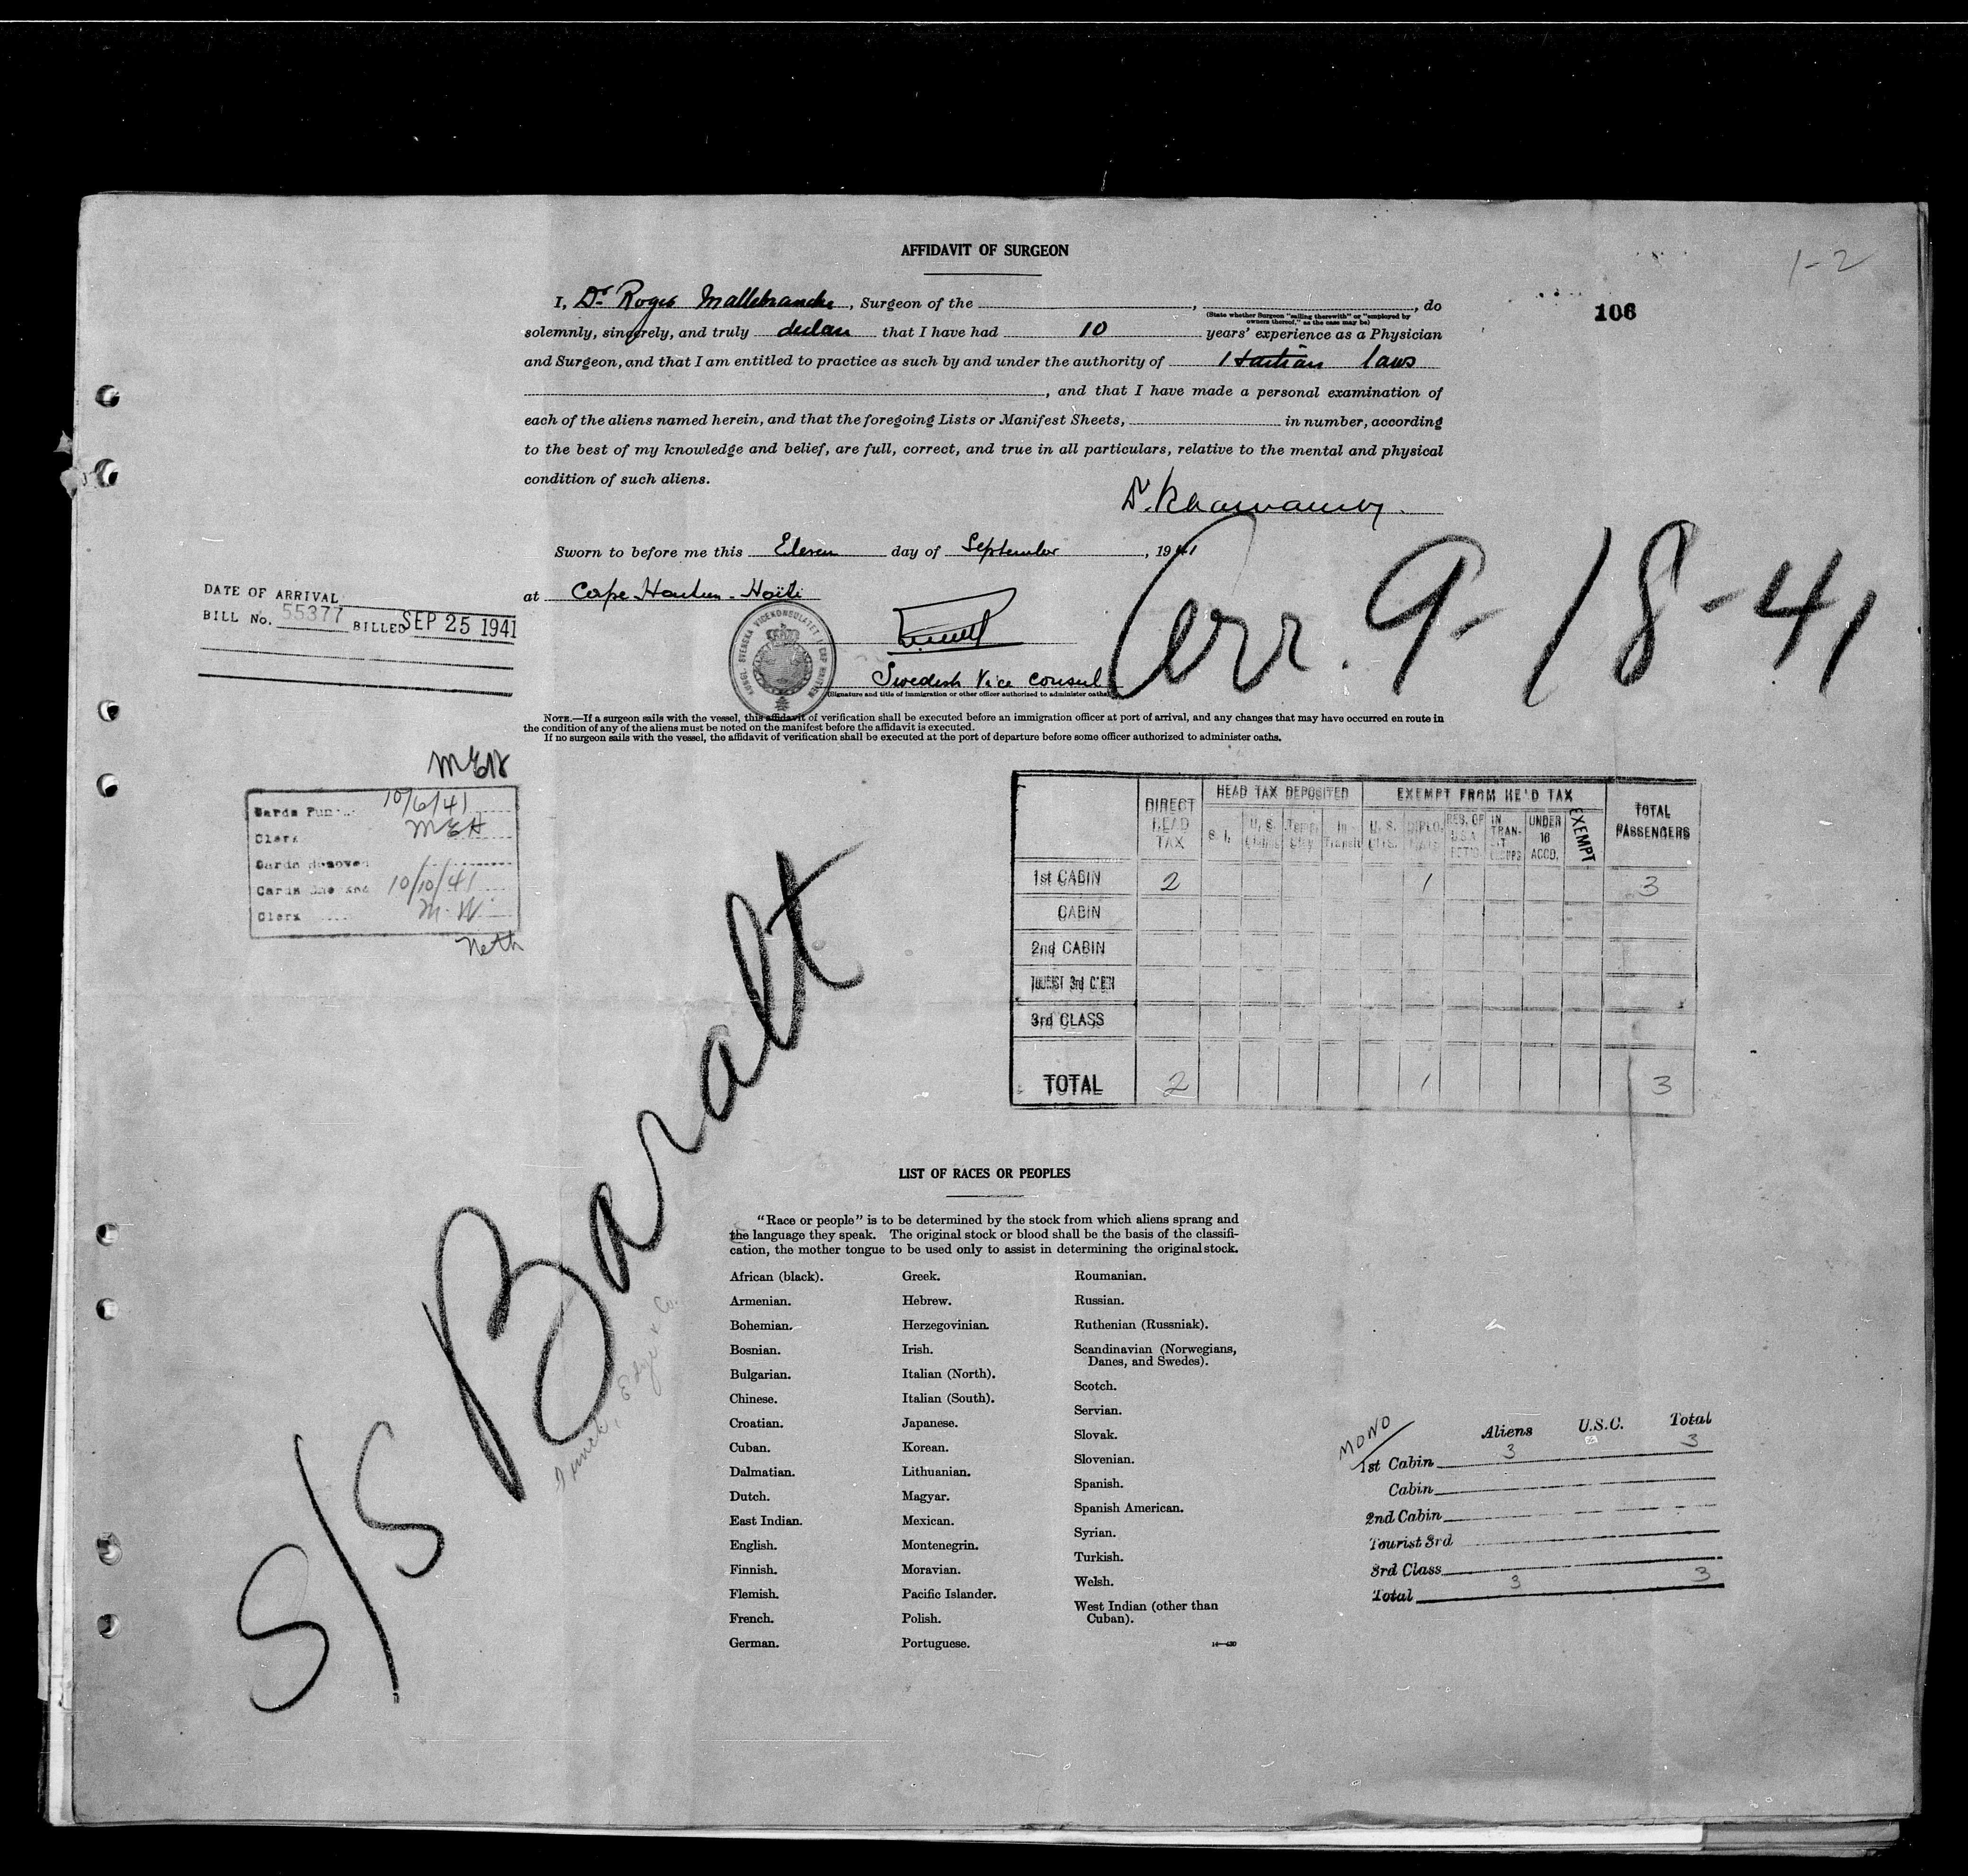 AFFIDAVIT OF SURGEON
1-2
106
I, Dr Roger Mallebranche, Surgeon of the , , do
(State whether Surgeon "sailing therewith" or "employed by owners thereof," as the case may be)
solemnly, sincerely, and truly declare that I have had 10 years' experience as a Physician
and Surgeon, and that I am entitled to practice as such by and under the authority of Haitian laws
, and that I have made a personal examination of
each of the aliens named herein, and that the foregoing Lists or Manifest Sheets, in number, according
to the best of my knowledge and belief, are full, correct, and true in all particulars, relative to the mental and physical
condition of such aliens.
Sworn to before me this Eleven day of September, 1941
at Cape-Haitien-Haïti
Swedish Vice Consul
(Signature and title of immigration or other officer authorized to administer oaths)
KUNGL. SVENSKA VICEKONSULATET I CAP HAITIEN
Arr. 9-18-41
DATE OF ARRIVAL
BILL No. 55377 BILLED SEP 25 1941
NOTE.—If a surgeon sails with the vessel, this affidavit of verification shall be executed before an immigration officer at port of arrival, and any changes that may have occurred en route in
the condition of any of the aliens must be noted on the manifest before the affidavit is executed.
If no surgeon sails with the vessel, the affidavit of verification shall be executed at the port of departure before some officer authorized to administer oaths.
Cards 10/6/41
Clerk MEH
Cards Removed
Cards Checked 10/10/41
Clerk M.W.
Neth
DIRECT HEAD TAX HEAD TAX DEPOSITED EXEMPT FROM HEAD TAX TOTAL PASSENGERS
S. I. U. S. Temp. Stay In Transit U. S. Cits. DIPLO- MATS RES. OF U.S.A. RETG. IN TRAN- SIT GROUPS UNDER 16 ACCD. EXEMPT
1st CABIN 2 1 3
CABIN
2nd CABIN
TOURIST 3rd CABIN
3rd CLASS
TOTAL 2 1 3
S/S Baralt
Funch, Edye & Co.
LIST OF RACES OR PEOPLES
"Race or people" is to be determined by the stock from which aliens sprang and
the language they speak. The original stock or blood shall be the basis of the classifi-
cation, the mother tongue to be used only to assist in determining the original stock.
African (black).
Armenian.
Bohemian.
Bosnian.
Bulgarian.
Chinese.
Croatian.
Cuban.
Dalmatian.
Dutch.
East Indian.
English.
Finnish.
Flemish.
French.
German.
Greek.
Hebrew.
Herzegovinian.
Irish.
Italian (North).
Italian (South).
Japanese.
Korean.
Lithuanian.
Magyar.
Mexican.
Montenegrin.
Moravian.
Pacific Islander.
Polish.
Portuguese.
Roumanian.
Russian.
Ruthenian (Russniak).
Scandinavian (Norwegians,
Danes, and Swedes).
Scotch.
Servian.
Slovak.
Slovenian.
Spanish.
Spanish American.
Syrian.
Turkish.
Welsh.
West Indian (other than
Cuban).
MONO
Aliens U.S.C. Total
1st Cabin 3 3
Cabin
2nd Cabin
Tourist 3rd
3rd Class
Total 3 3